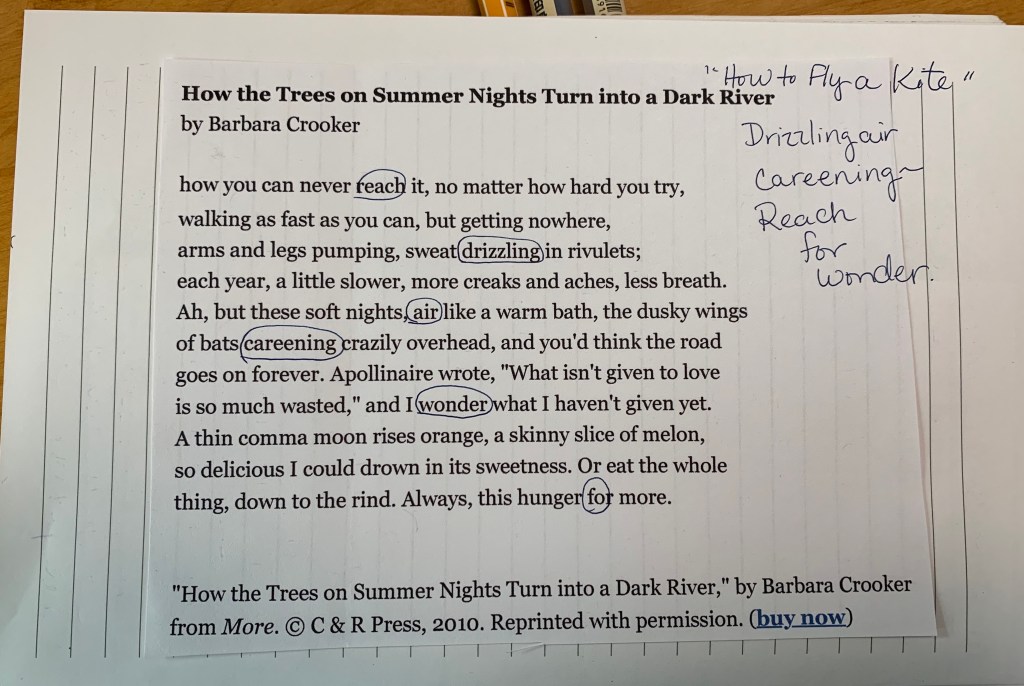 How the Trees on Summer Nights Turn into a Dark River
by Barbara Crooker
how you can never reach it, no matter how hard you try,
walking as fast as you can, but getting nowhere,
arms and legs pumping, sweat drizzling in rivulets;
each year, a little slower, more creaks and aches, less breath.
Ah, but these soft nights, air like a warm bath, the dusky wings
of bats careening crazily overhead, and you'd think the road
goes on forever. Apollinaire wrote, "What isn't given to love
is so much wasted," and I wonder what I haven't given yet.
A thin comma moon rises orange, a skinny slice of melon,
so delicious I could drown in its sweetness. Or eat the whole
thing, down to the rind. Always, this hunger for more.
"How the Trees on Summer Nights Turn into a Dark River," by Barbara Crooker
from More. © C & R Press, 2010. Reprinted with permission. (buy now)
"How to Fly a Kite"
Drizzling air
Careening~
Reach
for
wonder.